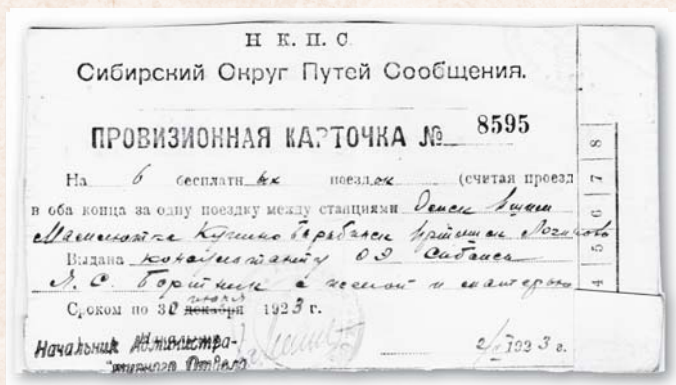 Н К. П. С.
Сибирский Округ Путей Сообщения.
ПРОВИЗИОННАЯ КАРТОЧКА № 8595
На 6 бесплатн ых поезд ок (считая проезд
в оба конца за одну поездку между станциями Омск Ишим
Барабинск
Выдана консультанту ОЭ
Я. С. Бортник с женой и матерью
Сроком по 30 июня декабря 1923 г.
Начальник Администра-
тивного Отдела
2/I 1923 г.
4 5 6 7 8